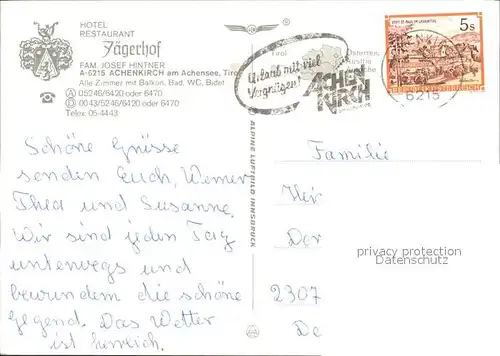 HOTEL
RESTAURANT
Jägerhof
FAM. JOSEF HINTNER
A-6215 ACHENKIRCH am Achensee, Tirol
Alle Zimmer mit Balkon, Bad, WC, Bidet
Ⓐ 05246/6420 oder 6470
Ⓓ 0043/5246/6420 oder 6470
Telex 05-4443
Tirol
Österreich
Austria
Urlaub mit viel
Vergnügen!
ACHEN
KIRCH
5s
STIFT ST. PAUL IM LAVANTTAL
REPUBLIK ÖSTERREICH
6215
Schöne Grüsse
senden Euch, Werner
Thea und Susanne.
Wir sind jeden Tag
unterwegs und
bewundern die schöne
Gegend. Das Wetter
ist herrlich.
ALPINE LUFTBILD INNSBRUCK
Familie
Her
Dor
2307
De
privacy protection
Datenschutz